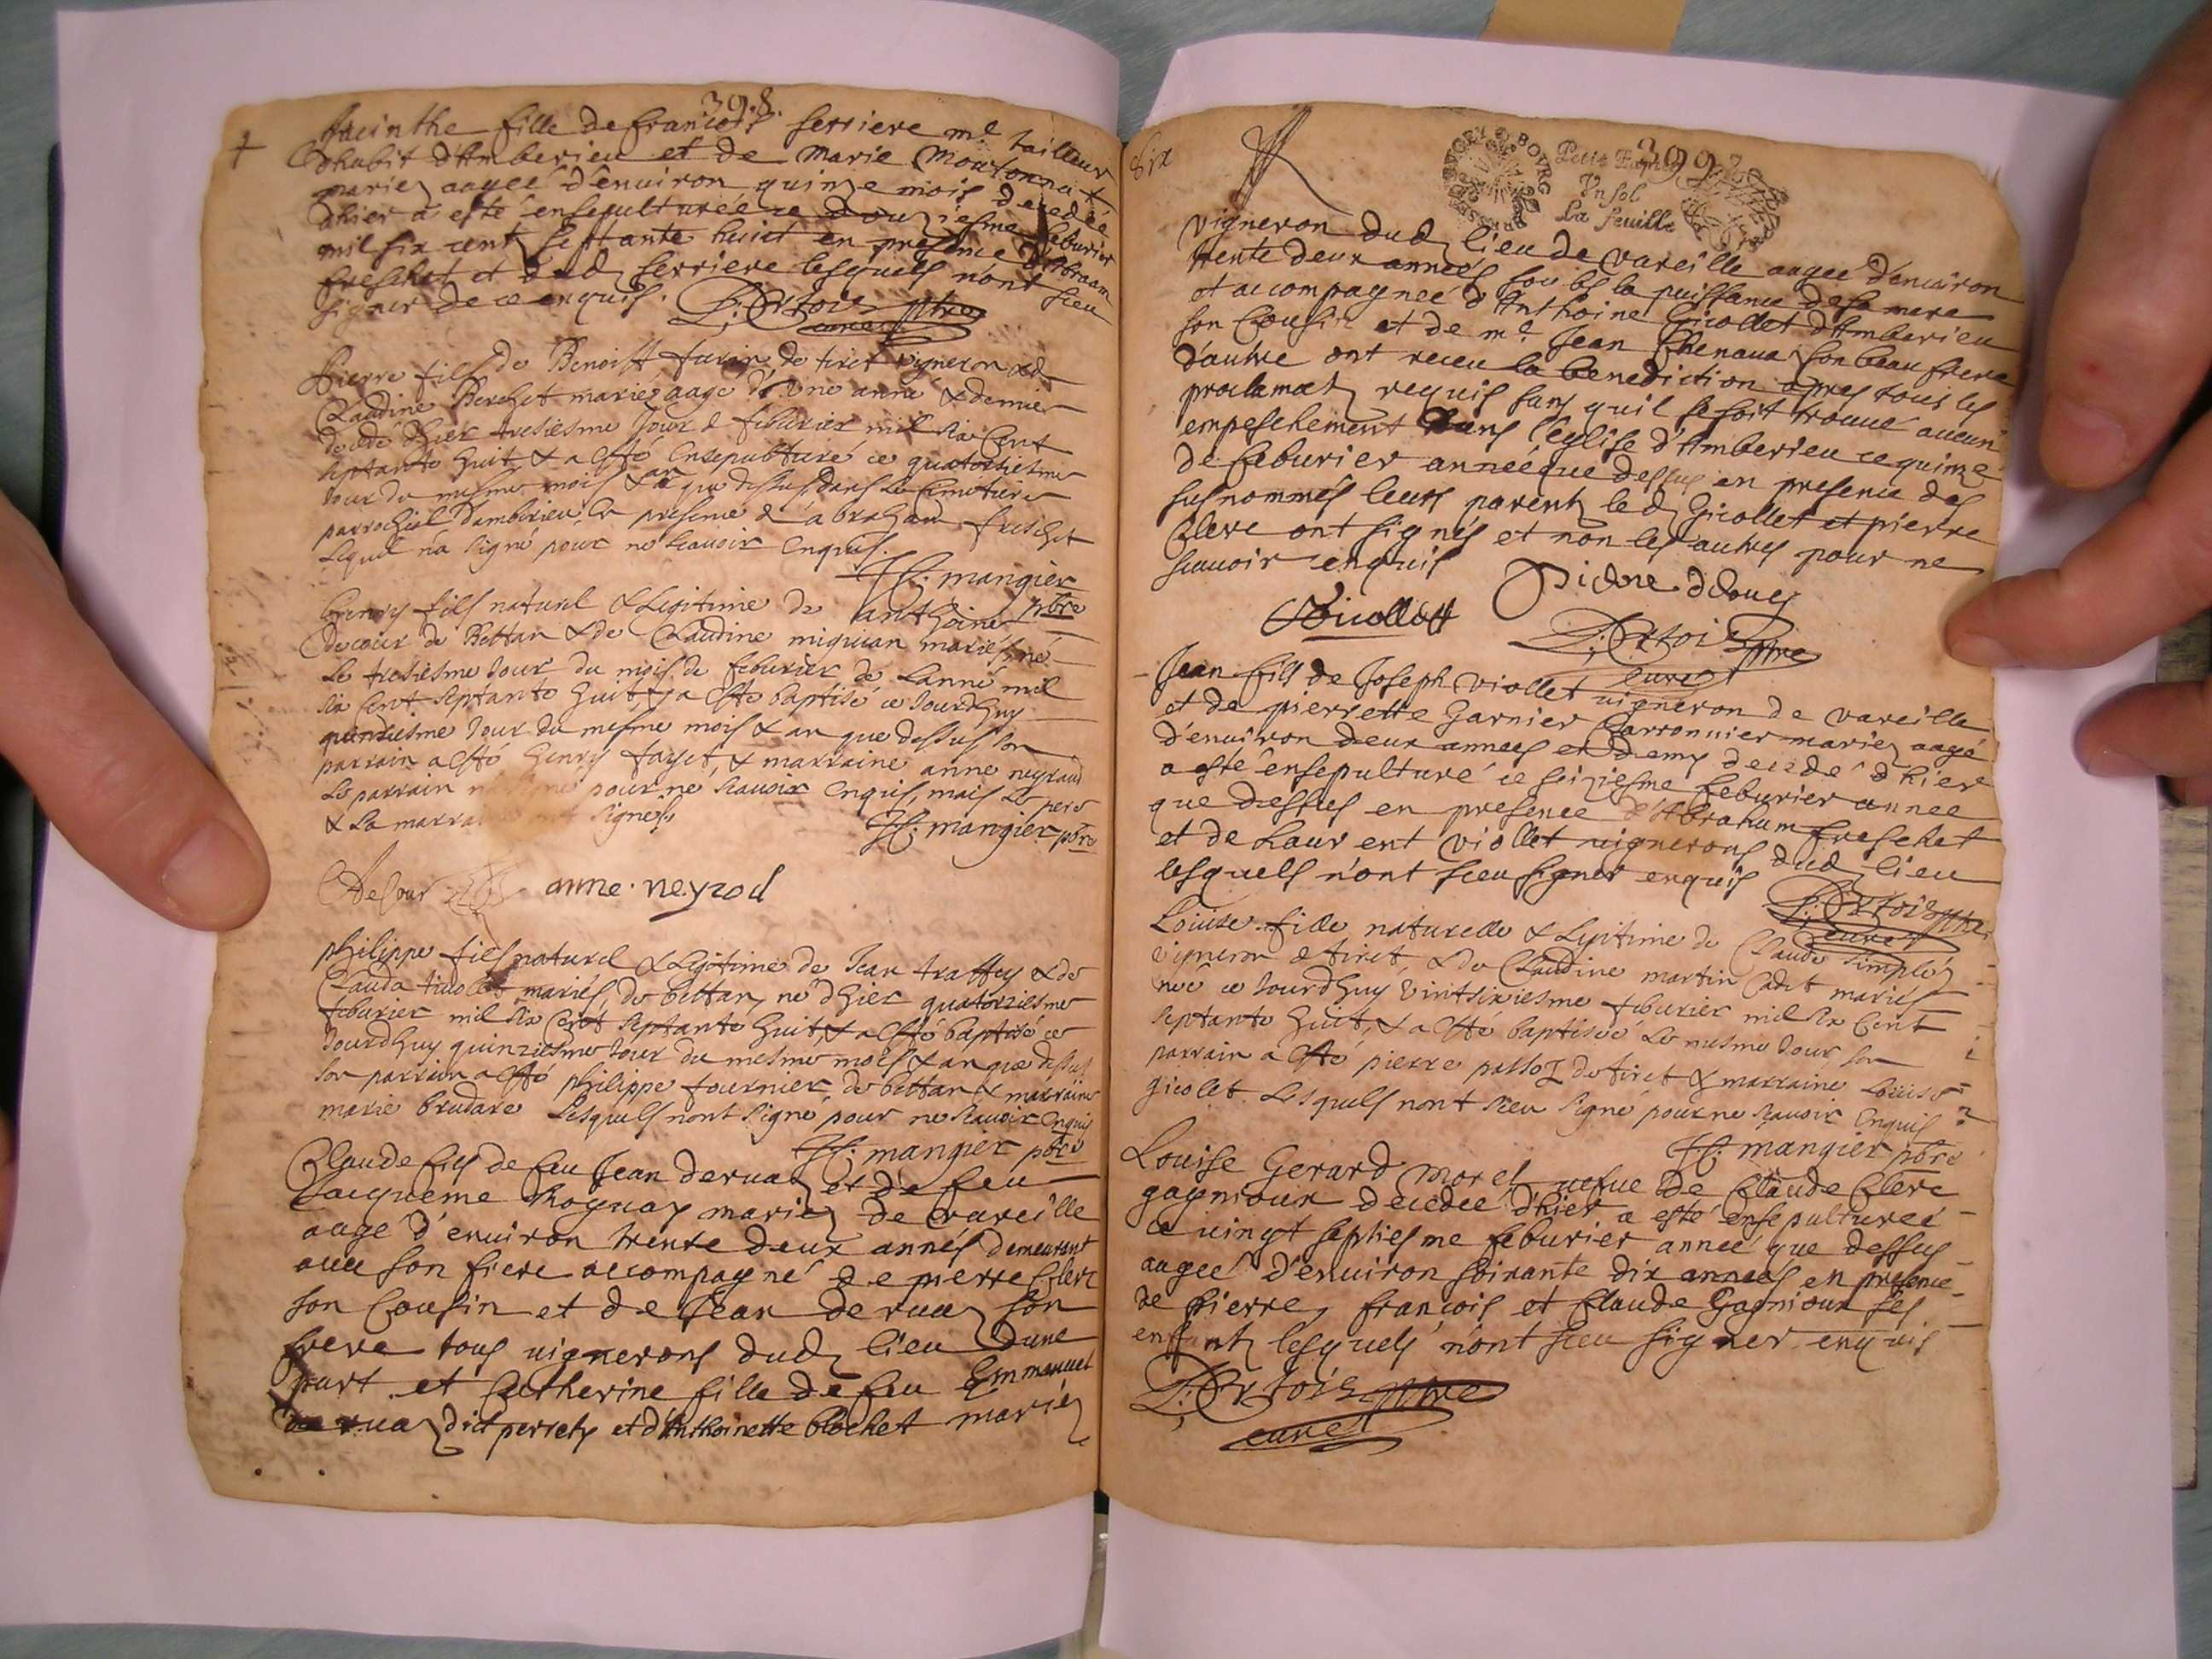 398
Hiacinthe fille de francois serriere me tailleur
dhabit d'Amberieu et de marie moutonnat
mariez aagee d'enuiron quinze mois decedée
dhier a esté ensepulturée ce douziesme feburier
mil six cent septante huict en presence d'Abraam
freschet et dud serriere lesquels n'ont sceu
signer de ce enquis. Ortois ptre
curé
Pierre fils de Benoist furin de tiret vigneron & d
Claudine Berchet mariez aage d'une anné & demie
decedé dhier tresiesme Jour d feburier mil six Cent
septante huit & a esté Ensepulturé ce quatorsiesme
Jour du mesme mois & an que dessus dans le Cimetiere
parrochial d'amberieu, En presence d'abraham freschet
Lequel n'a signé pour ne scauoir Enquis.
mangier
pbre
henry fils naturel & Legitime de anthoine
decour de Bettan & de Claudine miguian mariés, né
Le tresiesme Jour du mois de feburier de Lanné mil
six Cent septante huit, & a esté baptisé ce Jourdhuy
quinziesme Jour du mesme mois & an que dessus son
parrain a esté henry fayet, & marraine anne neyraud
Le parrain pour ne scauoir Enquis, mais Le pere
& La marra signés
mangier pbre
Decour anne neyrod
philippe fils naturel & Legitime de Jean traffey & de
Clauda tiuolet mariés, de bettan, né dhier quatorziesme
feburier mil six Cent septante huit, & a esté baptisé ce
Jourdhuy quinziesme Jour du mesme mois & an que dessus
son parrain a esté philippe fournier, de bettan & marraine
marie brudare Lesquels nont signé pour ne scauoir Enquis
mangier pbre
Claude fils de feu Jean deruaz et de feu
Jacqueme mariez de vareille
aagé d'enuiron trente deux annés demeurant
auec son frere accompagné de pierre Clerc
son Cousin et de Jean de ruaz son
frere tous uignerons dud lieu dune
part et Catherine fille de feu Emmanuel
de ruaz dict perrety et d'Anthoinette blochet mariez
Six
BOVRG
Petit Papier
Vn sol
La feuille
399
vigneron dud lieu de vareille aagee d'enuiron
trente deux annees soubs la puissance de sa mere
et accompagneé d'Anthoine Gicollet d'Amberieu
son Cousin et de me Jean Chenaua son beau frere
d'autre ont receu la benediction apres tous les
proclamatz requis sans quil se soit trouué aucun
empeschement dans l'eglise d'Amberieu ce quinze
de feburier anneé que dessus en presence des
susnommés leurs parentz le d Gicollet et pierre
Clerc ont signés et non les autres pour ne
scauoir enquis
Gicollet
Ortois ptre
curé
Jean fils de Joseph viollet uigneron de vareille
et de pierrette Garnier Carronnier mariez aagé
d'enuiron deux annees et demy decedé dhier
a esté ensepulturé ce seiziesme feburier annee
que dessus en presence d'Abraham freschet
et de Laurent viollet uignerons dud lieu
lesquels n'ont sceu signer enquis
Ortois ptre
curé
Louise fille naturelle & Legitime de Claude simplez
vigneron de tiret, & de Claudine martin Cadet mariés
neé ce Jourdhuy vintsixiesme feburier mil six Cent
septante huit, & a esté baptiseé Le mesme Jour, son
parrain a esté pierre de tiret & marraine Louise
gicolet. Lesquels nont sceu signé pour ne scauoir Enquis
mangier pbre
Louise Gerard morel uefue de Claude Clerc
gagnioux decedeé d'hier a esté ensepultureé
ce uingt septiesme feburier anneé que dessus
aageé d'enuiron soixante dix anneés en presence
de pierre, francois et Claude Gagnioux ses
enfantz lesquels n'ont sceu signer enquis
Ortois ptre
curé